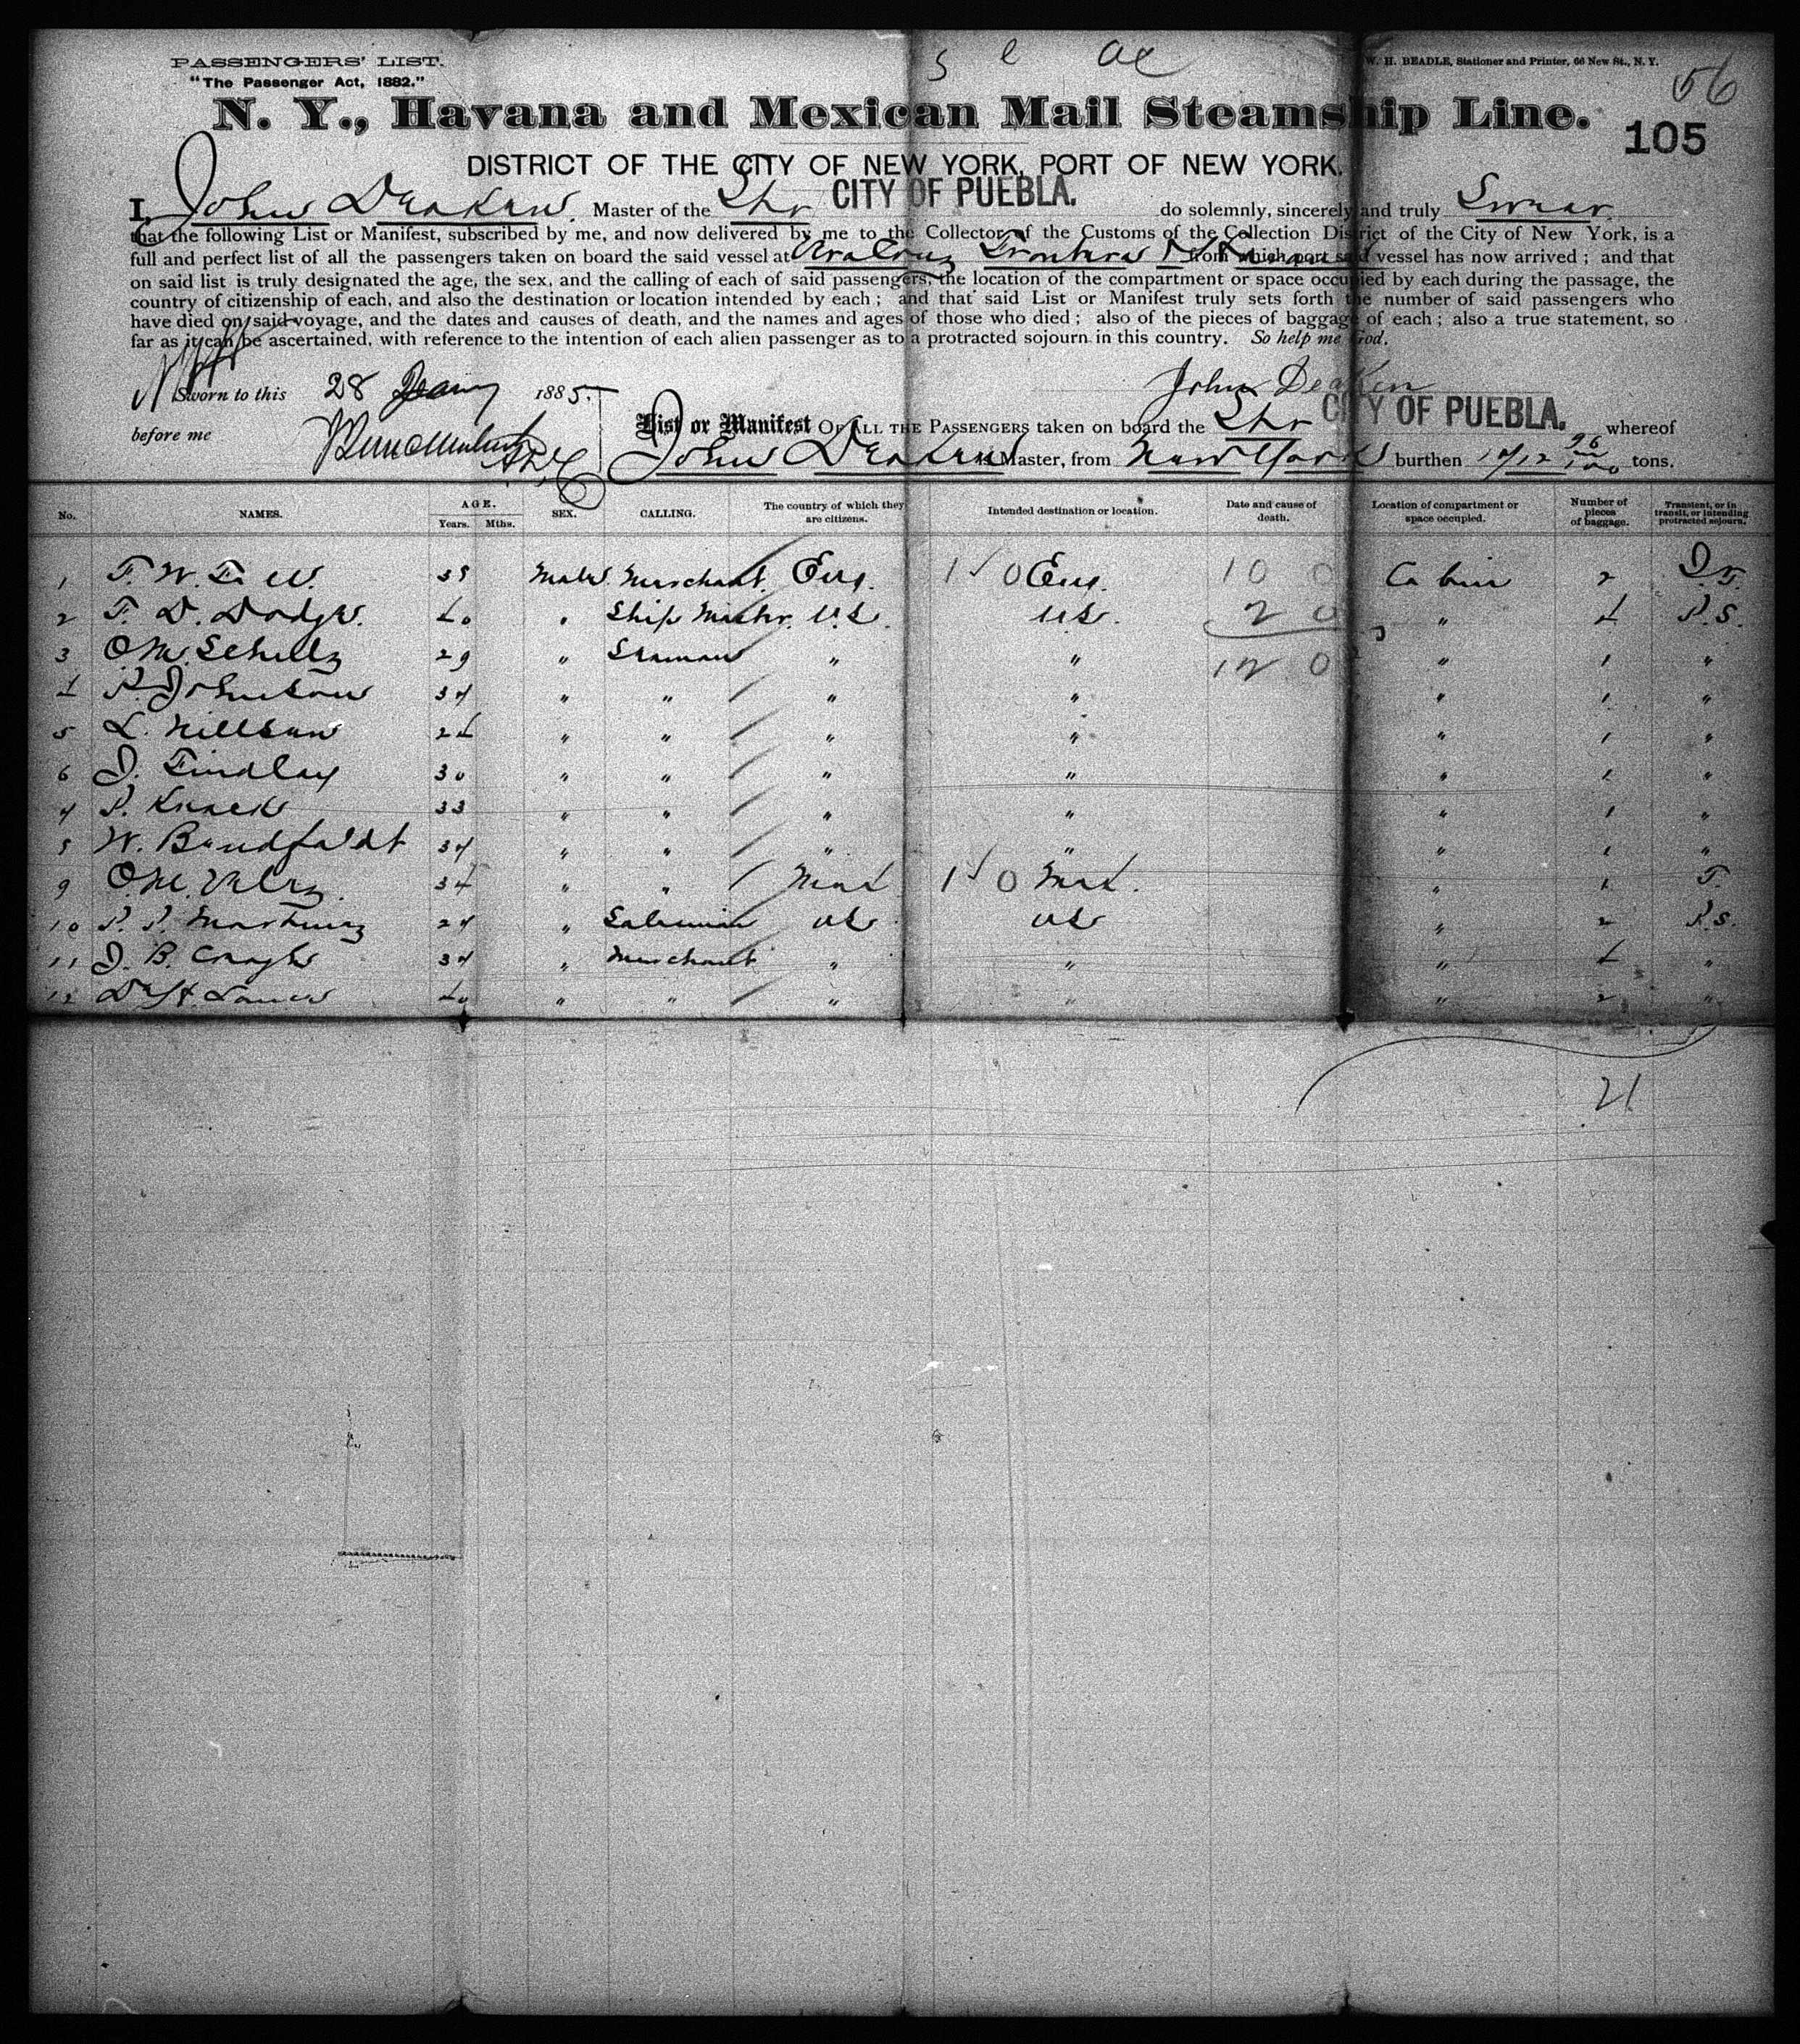 PASSENGERS' LIST.
"The Passenger Act, 1882."
W. H. BEADLE, Stationer and Printer, 66 New St., N. Y.
56
N. Y., Havana and Mexican Mail Steamship Line.
105
DISTRICT OF THE CITY OF NEW YORK, PORT OF NEW YORK.
I, John Deaken. Master of the Str CITY OF PUEBLA. do solemnly, sincerely and truly Swear
that the following List or Manifest, subscribed by me, and now delivered by me to the Collector of the Customs of the Collection District of the City of New York, is a
full and perfect list of all the passengers taken on board the said vessel at Vera Cruz Frontera & Havana from which port said vessel has now arrived; and that
on said list is truly designated the age, the sex, and the calling of each of said passengers, the location of the compartment or space occupied by each during the passage, the
country of citizenship of each, and also the destination or location intended by each; and that said List or Manifest truly sets forth the number of said passengers who
have died on said voyage, and the dates and causes of death, and the names and ages of those who died; also of the pieces of baggage of each; also a true statement, so
far as it can be ascertained, with reference to the intention of each alien passenger as to a protracted sojourn in this country. So help me God.
Sworn to this 28 Jany 1885. John Deaken
before me
List or Manifest OF ALL THE PASSENGERS taken on board the Str CITY OF PUEBLA. whereof
John Deaken is Master, from New York burthen tons.
No. NAMES. AGE. Years. Mths. SEX. CALLING. The country of which they are citizens. Intended destination or location. Date and cause of death. Location of compartment or space occupied. Number of pieces of baggage. Transient, or in transit, or intending protracted sojourn.
1 F. W. 35 Male Merchant Eng. 1 0 Eng. 10 0 Cabin 2
2 F. D. Dodge. 40 " Ship Master U.S. U.S. 2 0 " 4 P.S.
3 O. M. Schultz 29 " Seaman " " 12 0 " 1 "
4 P. Johnson 37 " " " " " 1 "
5 L. Nillson 24 " " " " " 1 "
6 J. Findlay 30 " " " " " 1 "
7 P. Knack 33 " " " " " 1 "
8 W. Bundfeldt 37 " " " " " 1 "
9 O. M. 34 " " Mex 1 0 Mex. " 1 T.
10 P. P. Martinez 27 " Salesman US US " 2 P.S.
11 J. B. 37 " Merchant " " " 4 "
12 40 " " " " " 2 "
21